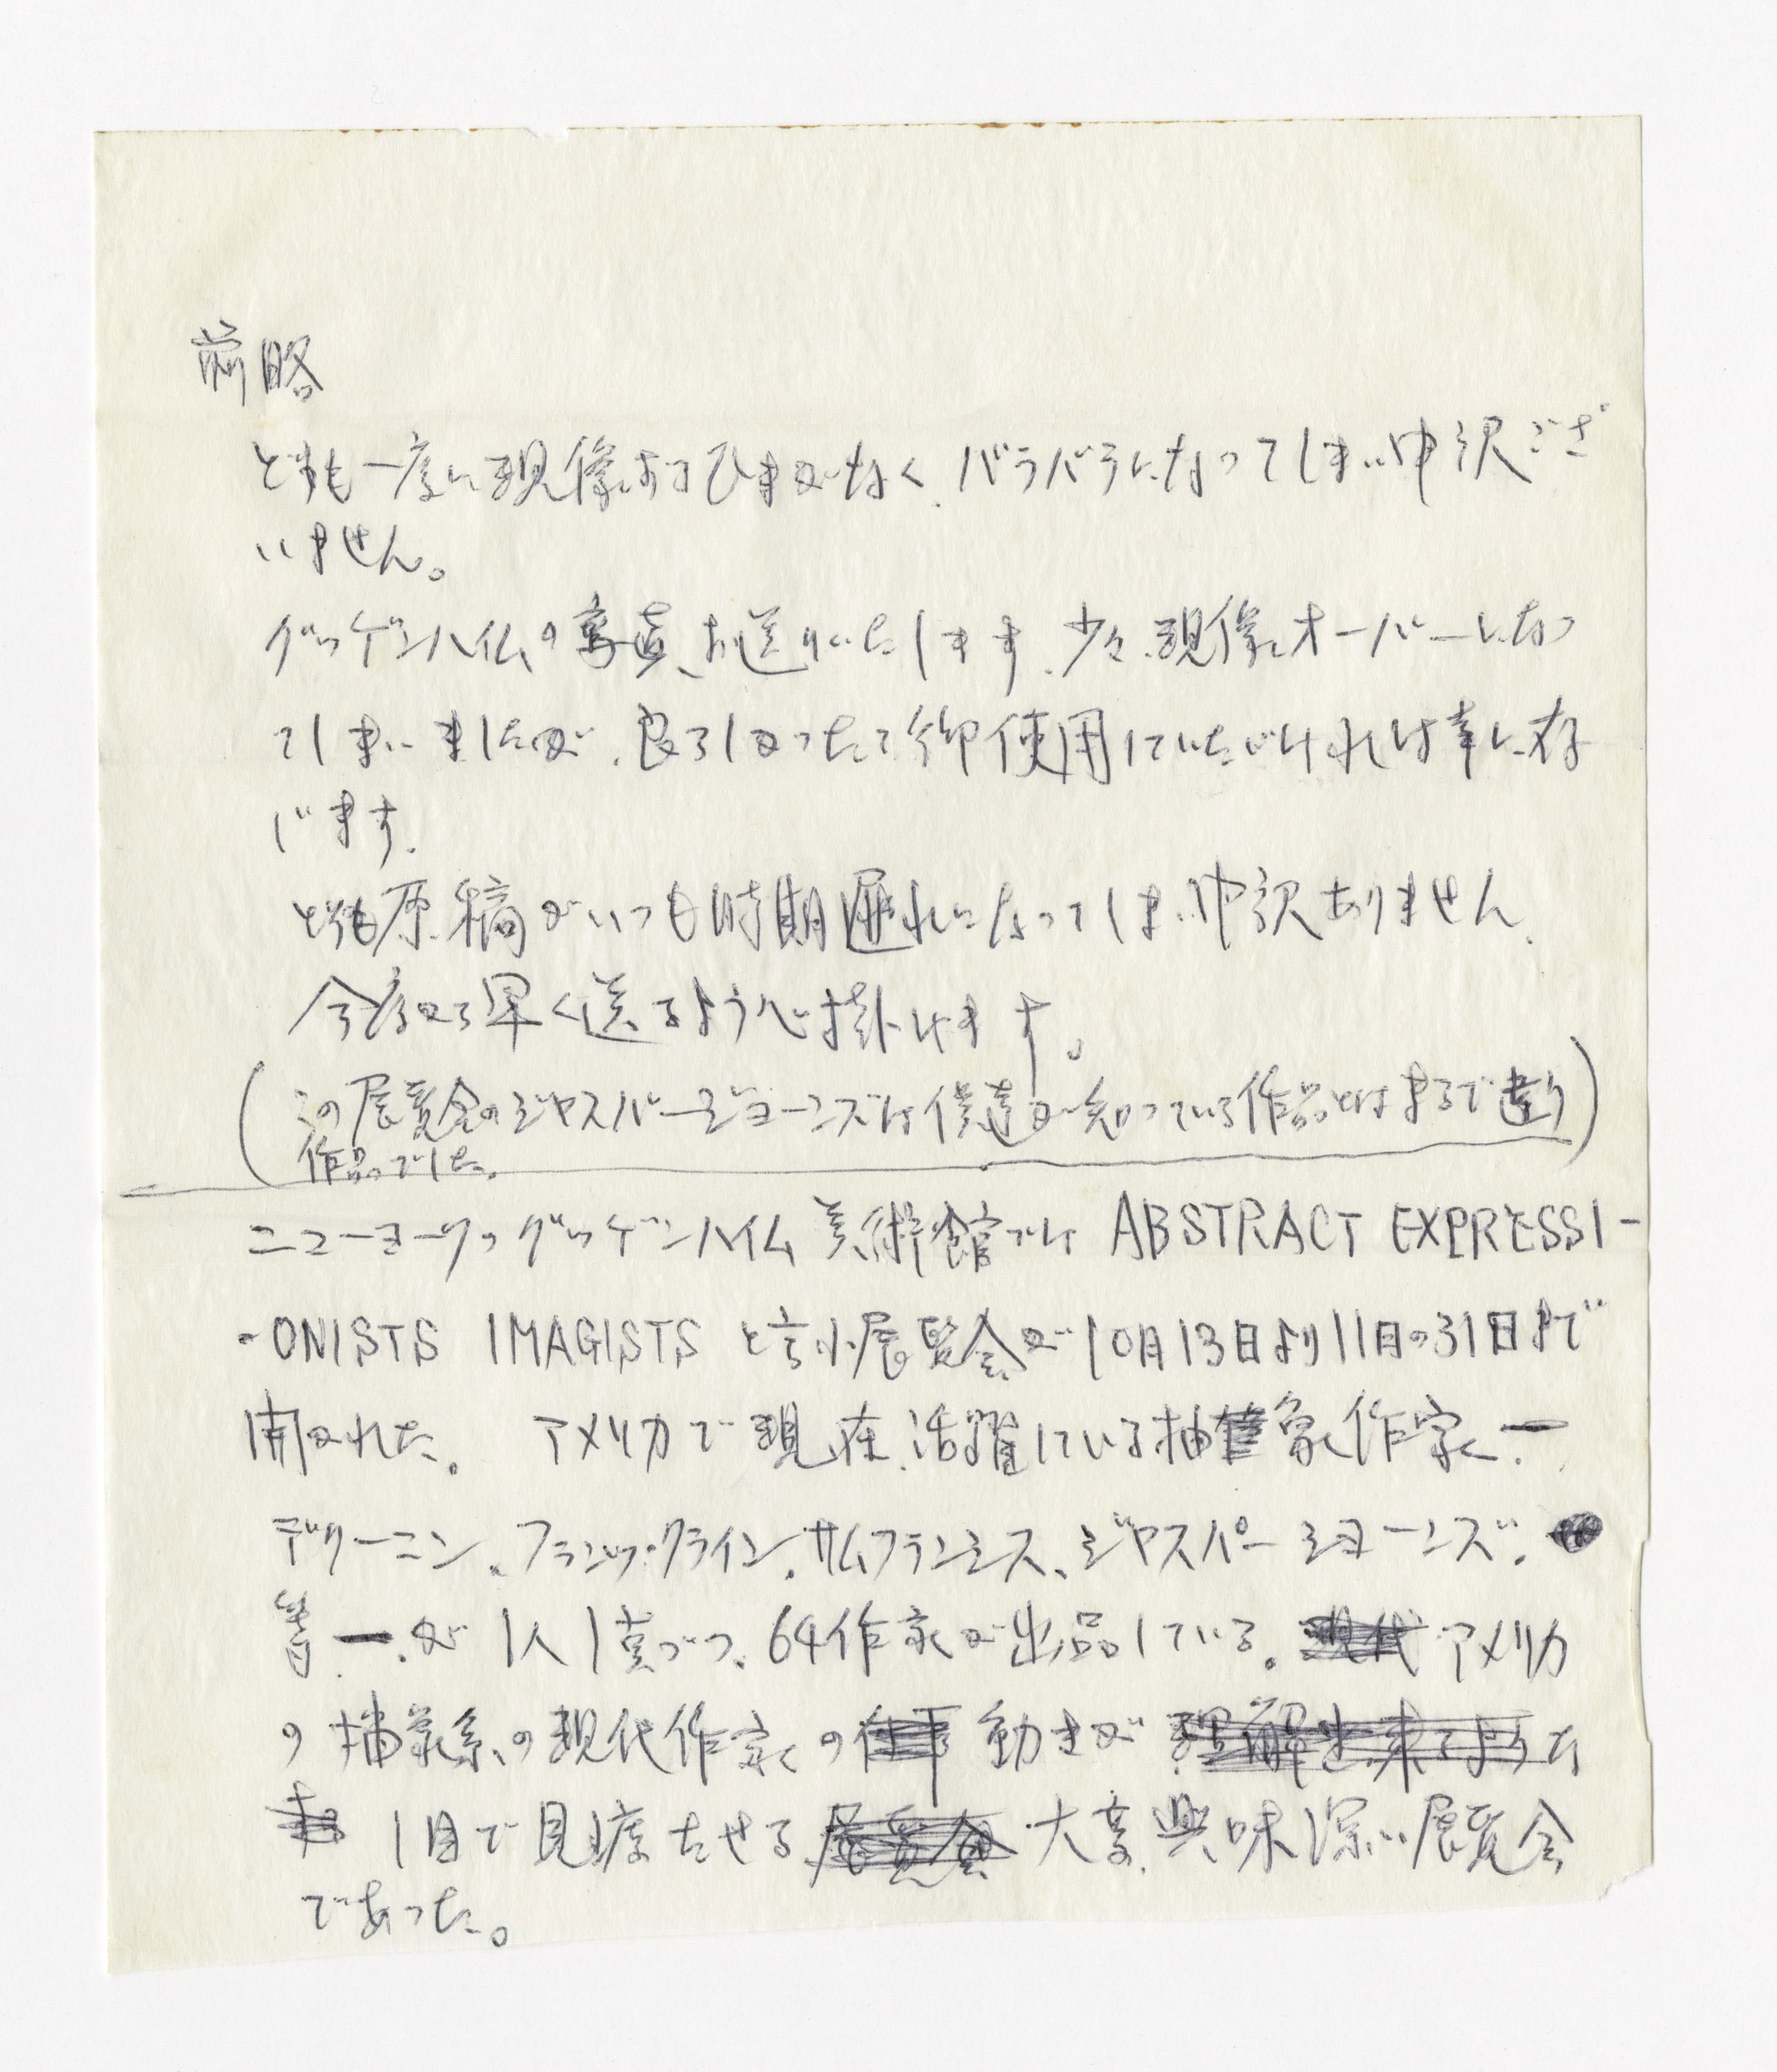 前略
とても一度に現像するひまがなく、バラバラになってしまい申訳ござ
いません。
グッゲンハイムの写真、お送りいたします。少々、現像オーバーになっ
てしまいましたが、良ろしかったら御使用していただければ幸に存
じます。
とても原稿がいつも時期遅れになってしまい申訳ありません、
今度から早く送るよう心掛けます。
(この展覧会のジャスパージョーンズは僕達が知っている作品とはまるで違う
作品でした。)
ニューヨークのグッゲンハイム美術館では ABSTRACT EXPRESSI-
-ONISTS IMAGISTS と言う展覧会が10月13日より11月の31日まで
開かれた。 アメリカで現在、活躍している抽象作家、ー
デクーニン、フランツ・クライン、サムフランシス、ジャスパージョーンズ、
等ー、が1人1点づつ、64作家が出品している。アメリカ
の抽象系の現代作家の動きが
1目で見渡たせる大変、興味深い展覧会
であった。